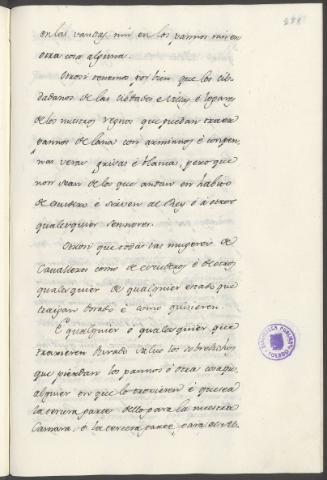 en las vandas, nin en los pannos nin en
otra cosa alguna.
Otrosi tenemos por bien que los cib-
dadanos de las cibdades e villas e logares
de los nuestros regnos que puedan traer
pannos de lana con arminnos e con pen-
nas veras grisas e blancas, pero que
non sean de los que andan en habito
de escudero e sirven al Rey o a otror
qualesquier sennores.
Otrosi que todas las mugeres de
Cavalleros como de escuderos e de otros
qualesquier de qualquier estado que
trayan dorado e como quisieren.
E qualquier o qualesquier que
troxieren dorado salvo los sobredichos
que pierdan los pannos o otra cosa
alguna en que lo troxieren e que sea
la tercera parte dello para la nuestra
Camara, e la tercera parte para el